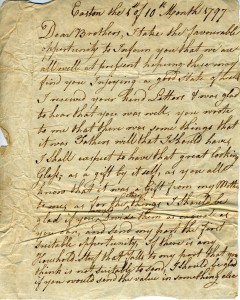 Easton the 1 of 10th Month 1797
Dear Brothers, I take the favourable
opportunity to Inform you that we are
all well at present hoping these may
find you Injoying a good State of health
I received your kind Letters & was glad
to hear that you was well, you wrote
to me that there was some things that
it was Fathers will that I should have
I shall expect to have that great looking
Glass as a gift by it self, as you all
know that it was a Gift from my Mother
to me, as for the things I should be
glad if you
you can, and send my part the first
Suitable Opportunity, If there is any
Household that falls to my part that you
think is not suitable to send, I should be glad
if you would send the value in something else